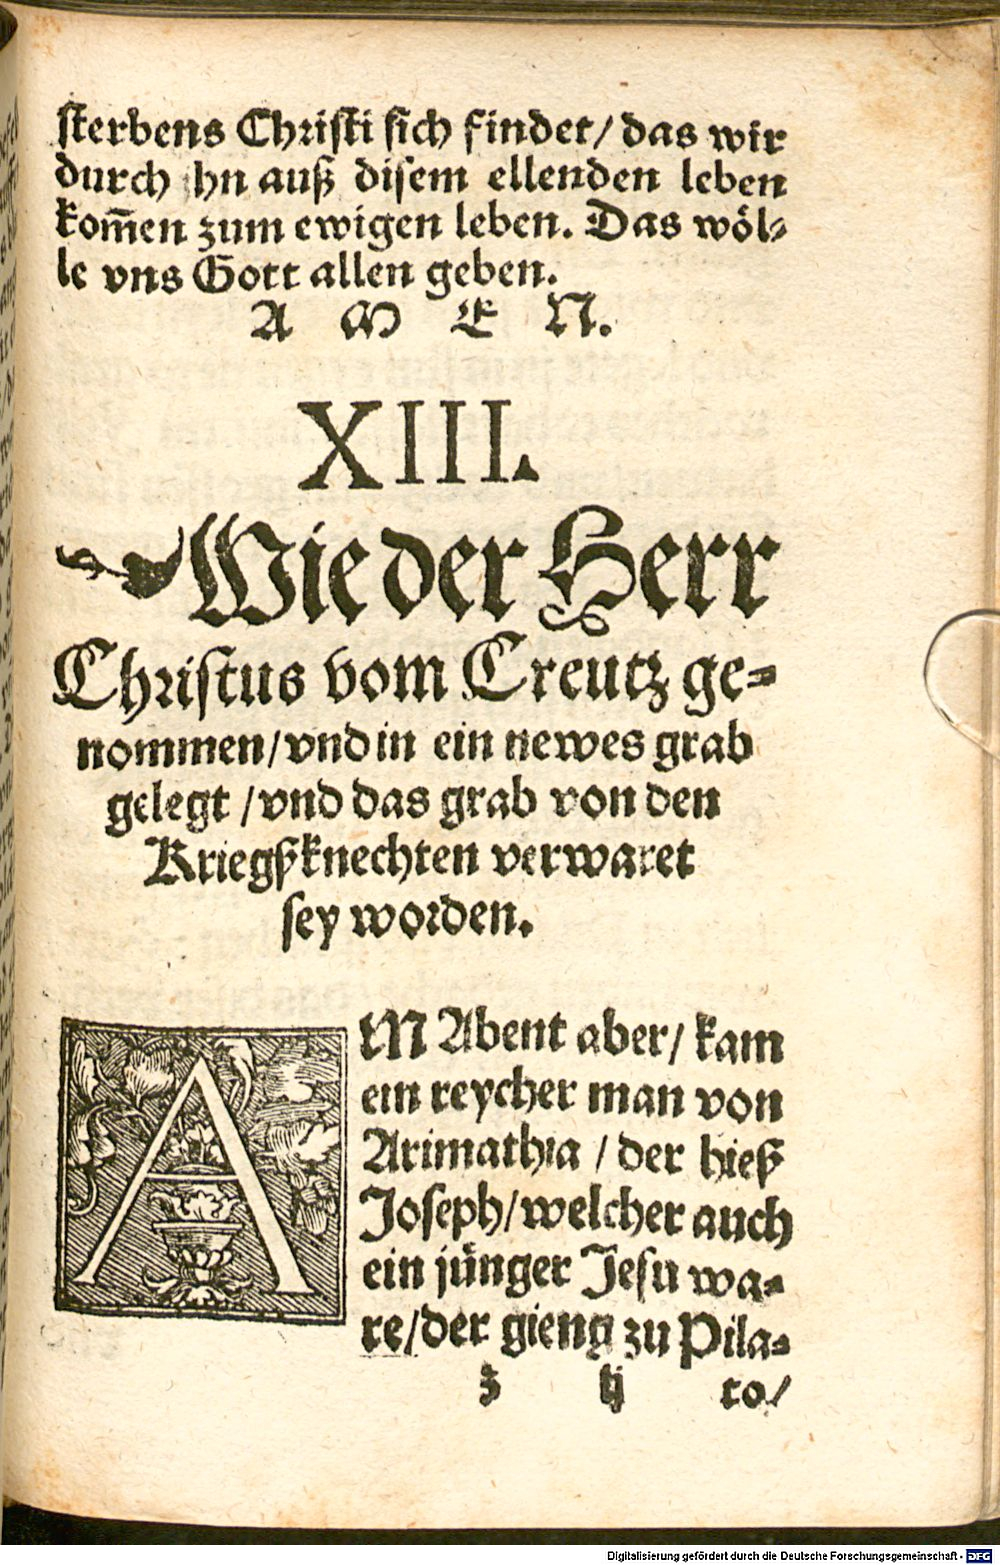 sterbens Christi sich findet/ das wir
durch ihn auß disem ellenden leben
kom̄en zum ewigen leben. Das wöl-
le vns Gott allen geben.
A M E N.
XIII.
Wie der Herr
Christus vom Creutz ge-
nommen/ vnd in ein newes grab
gelegt / vnd das grab von den
Kriegßknechten verwaret
sey worden.
AM Abent aber/ kam
ein reycher man von
Arimathia / der hieß
Joseph/ welcher auch
ein jünger Jesu wa-
re/ der gieng zu Pila-
z ij to/
Digitalisierung gefördert durch die Deutsche Forschungsgemeinschaft - DFG